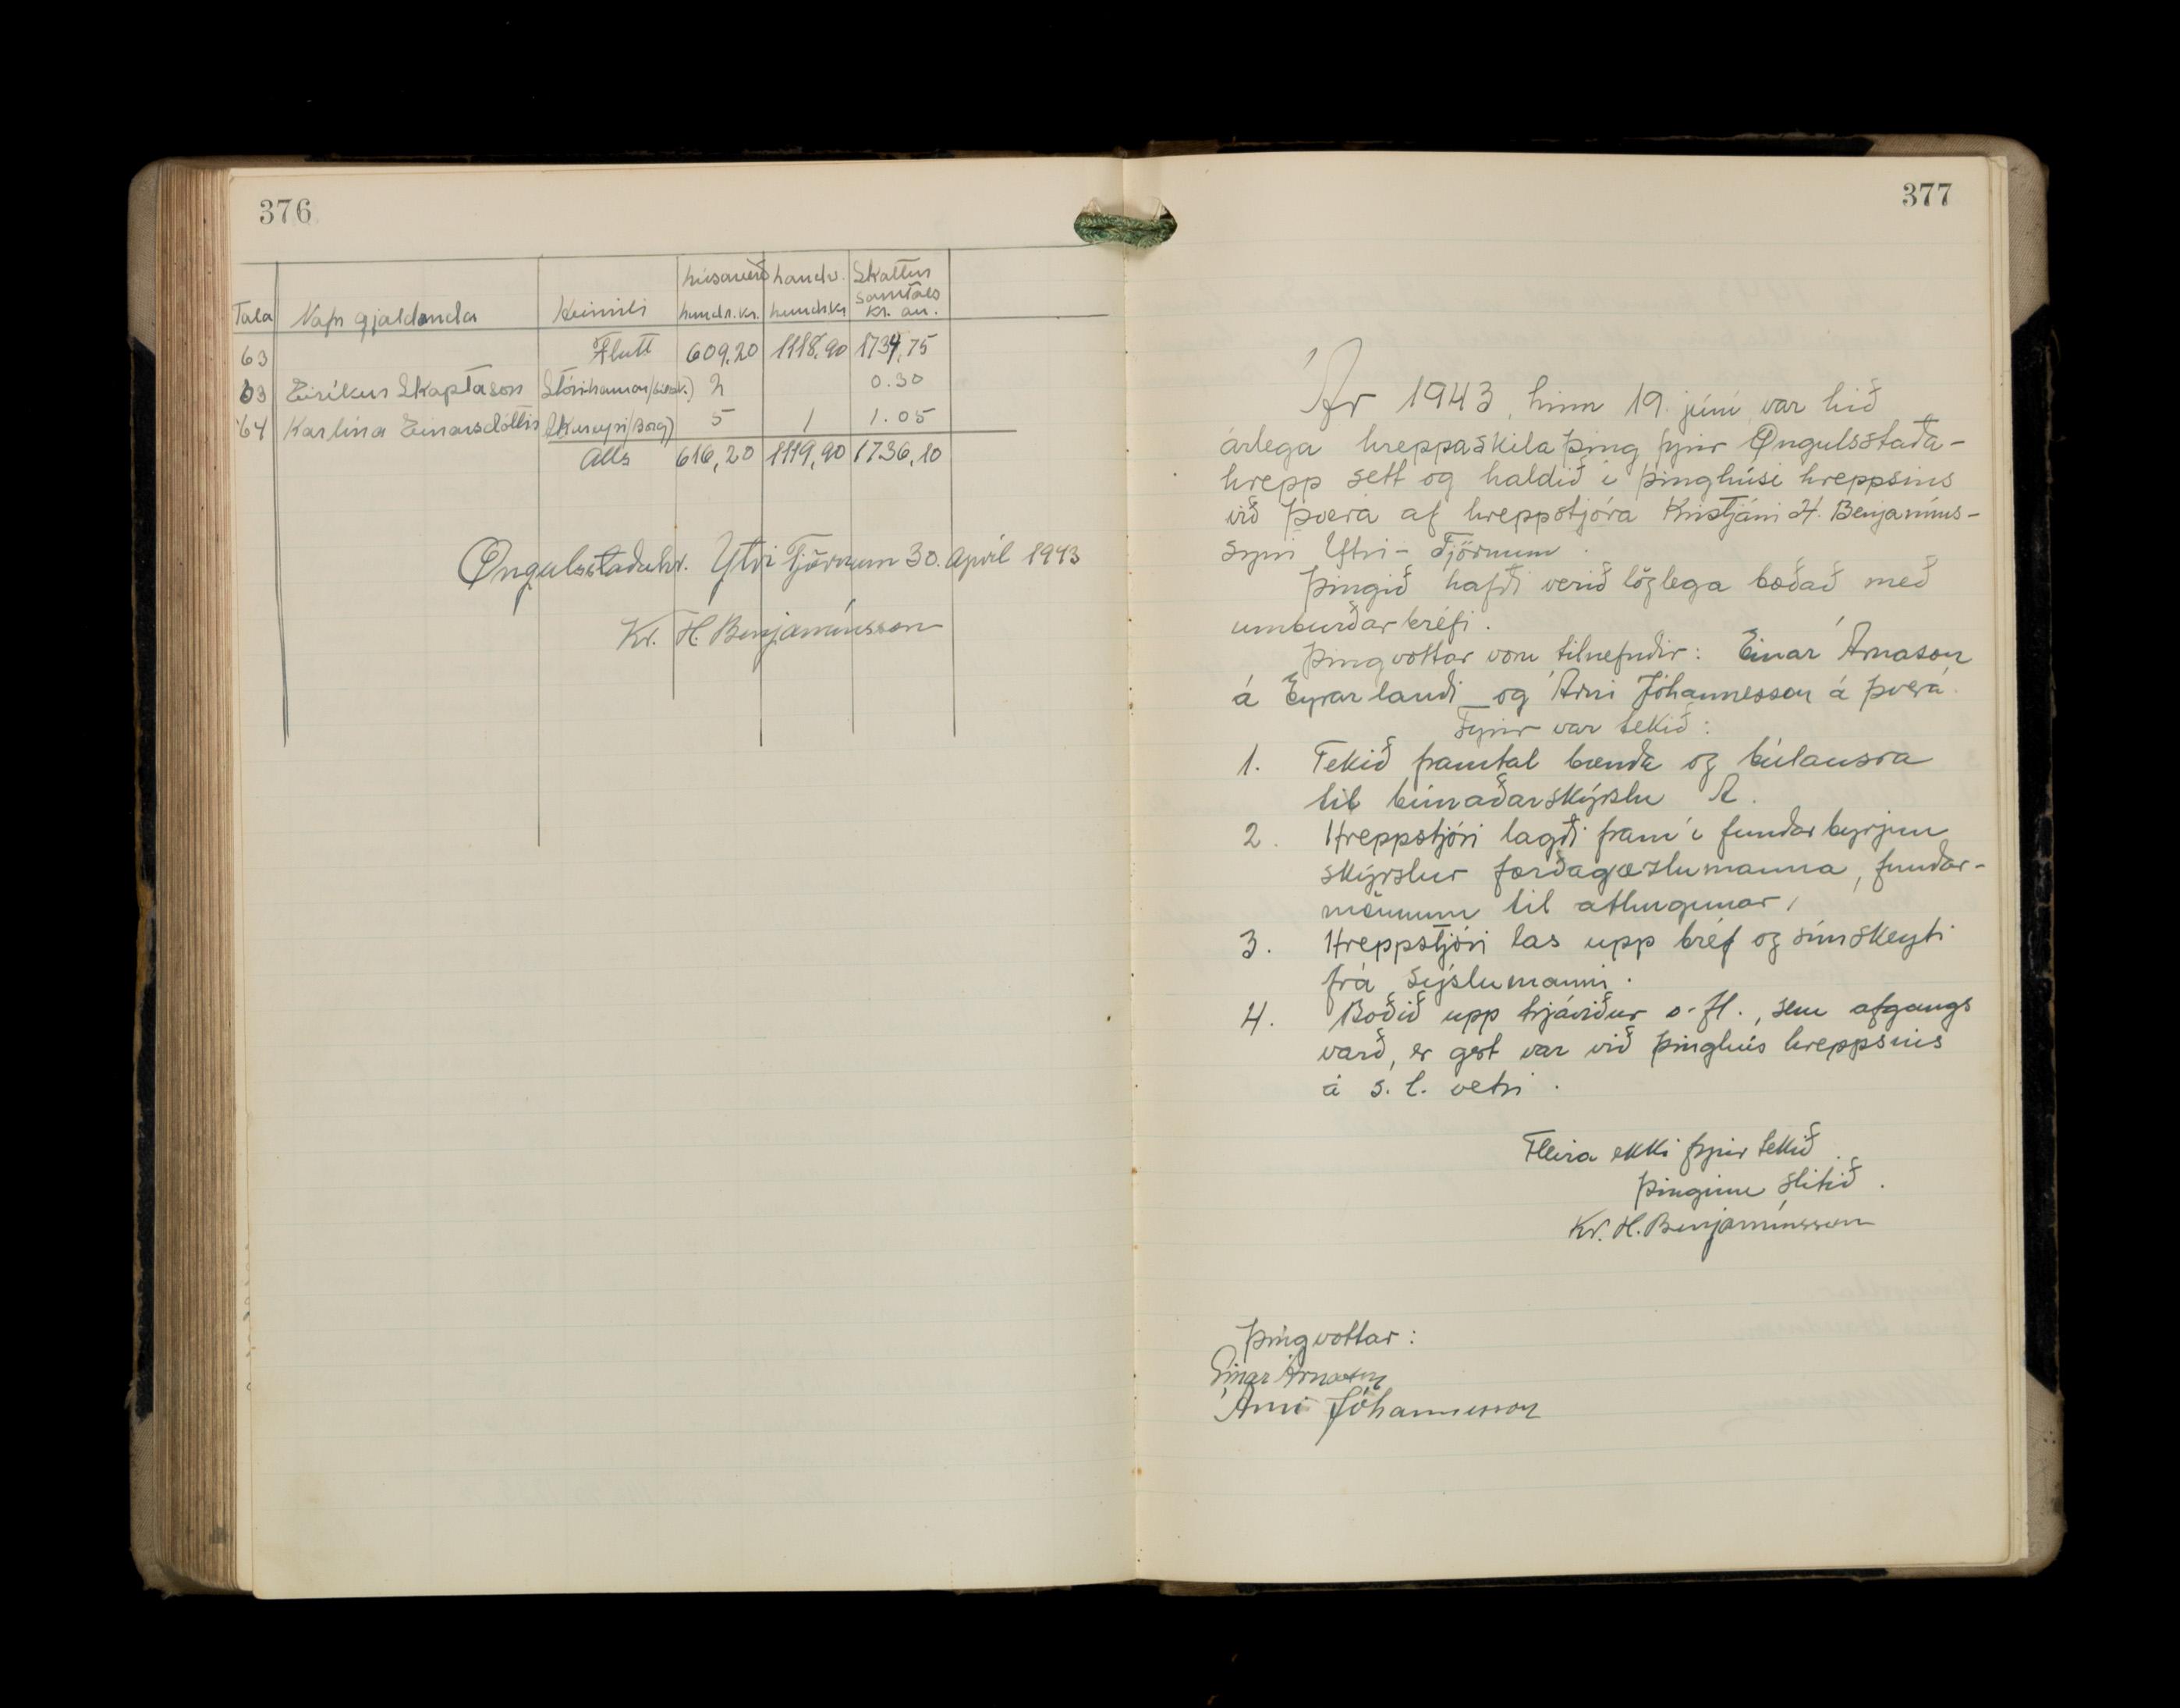 376
húsaverð landv. Skattur
samtals
Tala Nafn gjaldanda Heimili hundr.kr. hundr.kr kr. au.
63 Flutt 609,20 1118,90 1734,75
63 Eiríkur Skaptason Stórihamar 2 0.30
64 Karlína Einarsdóttir Akureyri/Borg) 5 1 1.05
Alls 616,20 1119,90 1736,10
Öngulsstaðahr. Ytri Tjörnum 30. apríl 1943
Kr. H. Benjamínsson
377
Ár 1943, hinn 19. júní var hið
árlega hreppaskilaþing fyrir Öngulsstaða-
hrepp sett og haldið í þinghúsi hreppsins
við Þverá af hreppstjóra Kristjáni H. Benjamíns-
syni Ytri-Tjörnum.
Þingið hafði verið löglega boðað með
umburðarbréfi.
Þingvottar voru tilnefndir: Einar Árnason
á Eyrarlandi og Árni Jóhannesson á Þverá.
Fyrir var tekið:
1. Tekið framtal bænda og búlausra
til búnaðarskýrslu A.
2. Hreppstjóri lagði fram í fundarbyrjun
skýrslur forðagæzlumanna, fundar-
mönnum til athugunar,
3. Hreppstjóri las upp bréf og símskeyti
frá sýslumanni.
4. Boðið upp trjáviður o.fl., sem afgangs
varð, er gert var við þinghús hreppsins
á s.l. vetri.
Fleira ekki fyrir tekið.
Þinginu slitið.
Kr. H. Benjamínsson
Þingvottar:
Einar Árnason
Árni Jóhannesson